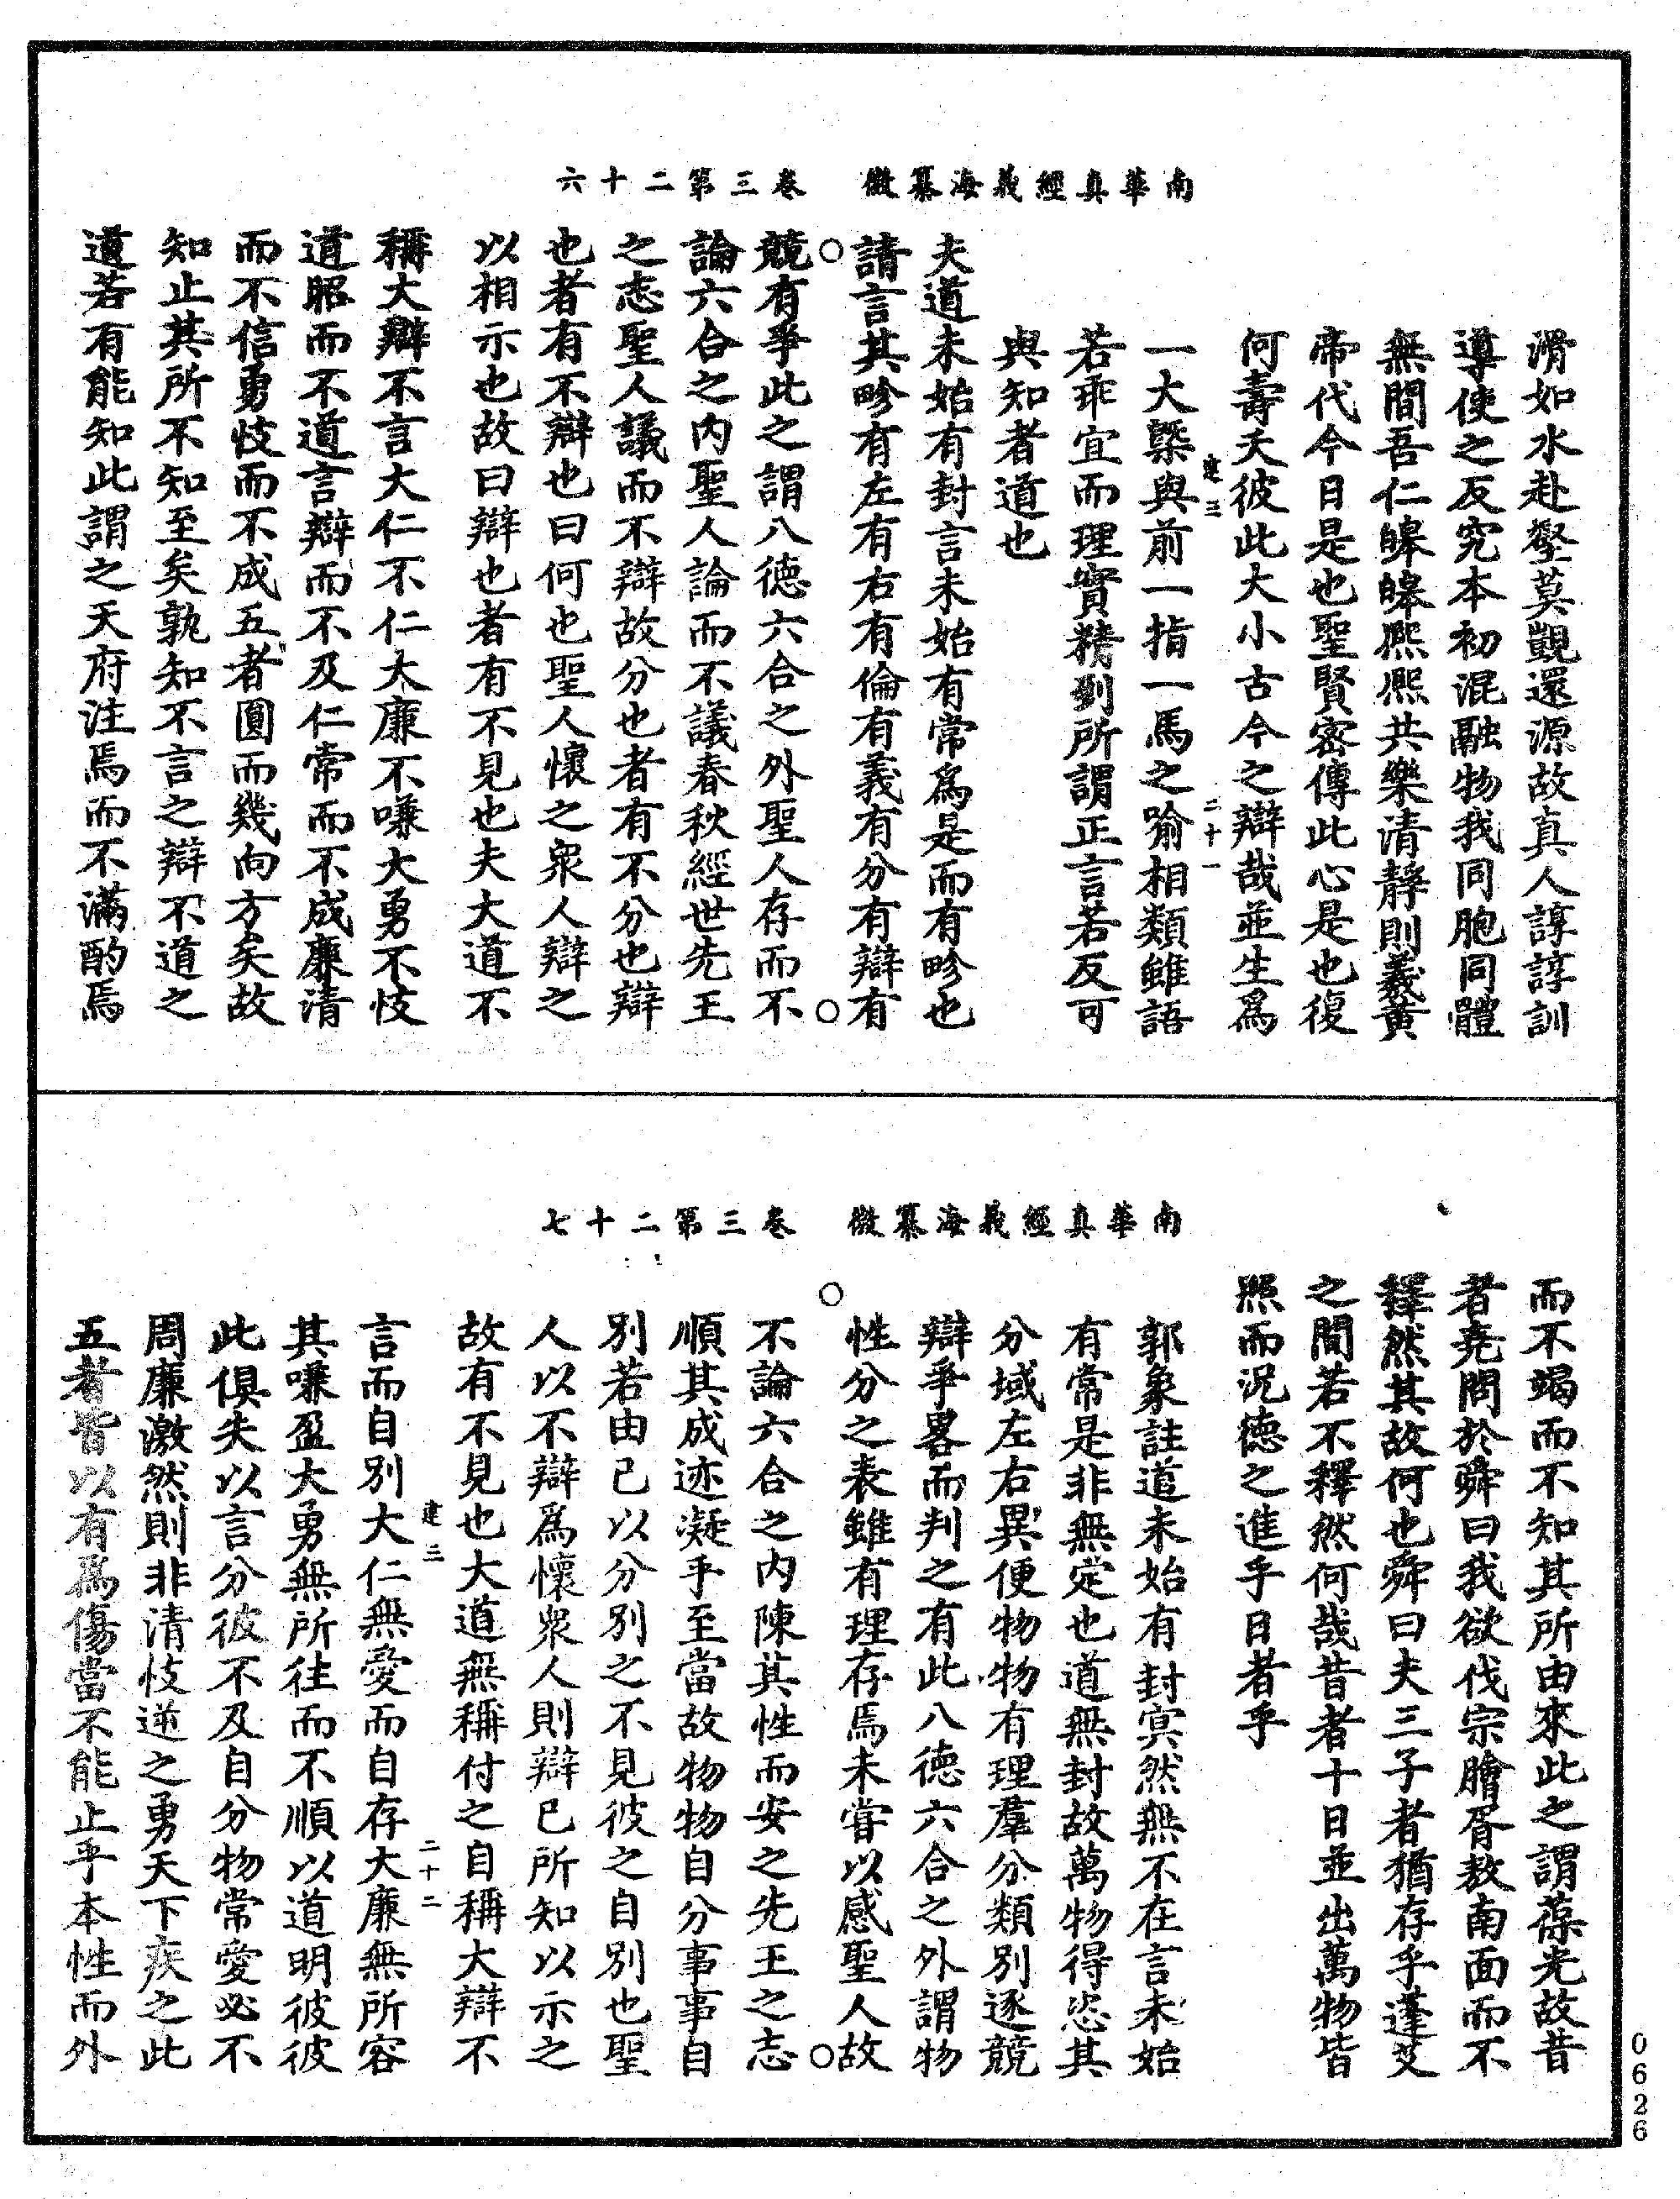 南華真經義海纂微　卷三第二十六
滑如水赴壑莫覬還源故真人諄諄訓
導使之反究本初混融物我同胞同體
無間吾仁皞皞熈熈共樂清靜則羲黃
帝代今日是也聖賢密傳此心是也復
何壽夭彼此大小古今之辯哉並生爲
建三　二十一
一大槩與前一指一馬之喻相類雖語
若乖宜而理實精到所謂正言若反可
與知者道也
夫道未始有封言未始有常爲是而有畛也
請言其畛有左有右有倫有義有分有辯有
競有爭此之謂八德六合之外聖人存而不
論六合之內聖人論而不議春秋經世先王
之志聖人議而不辯故分也者有不分也辯
也者有不辯也曰何也聖人懷之衆人辯之
以相示也故曰辯也者有不見也夫大道不
稱大辯不言大仁不仁大廉不嗛大勇不忮
道昭而不道言辯而不及仁常而不成廉清
而不信勇忮而不成五者圓而幾向方矣故
知止其所不知至矣孰知不言之辯不道之
道若有能知此謂之天府注焉而不滿酌焉
南華真經義海纂微　卷三第二十七
而不竭而不知其所由來此之謂葆光故昔
者堯問於舜曰我欲伐宗膾胥敖南面而不
釋然其故何也舜曰夫三子者猶存乎蓬艾
之間若不釋然何哉昔者十日並出萬物皆
照而況德之進乎日者乎
郭象註道未始有封冥然無不在言未始
有常是非無定也道無封故萬物得恣其
分域左右異便物物有理羣分類別逐競
辯爭畧而判之有此八德六合之外謂物
性分之表雖有理存焉未嘗以感聖人故
不論六合之內陳其性而安之先王之志
順其成迹凝乎至當故物物自分事事自
別若由己以分別之不見彼之自別也聖
人以不辯爲懷衆人則辯已所知以示之
故有不見也大道無稱付之自稱大辯不
建三　二十二
言而自別大仁無愛而自存大廉無所容
其嗛盈大勇無所往而不順以道明彼彼
此俱失以言分彼不及自分物常愛必不
周廉激然則非清忮逆之勇天下疾之此
五者皆以有爲傷當不能止乎本性而外
0626